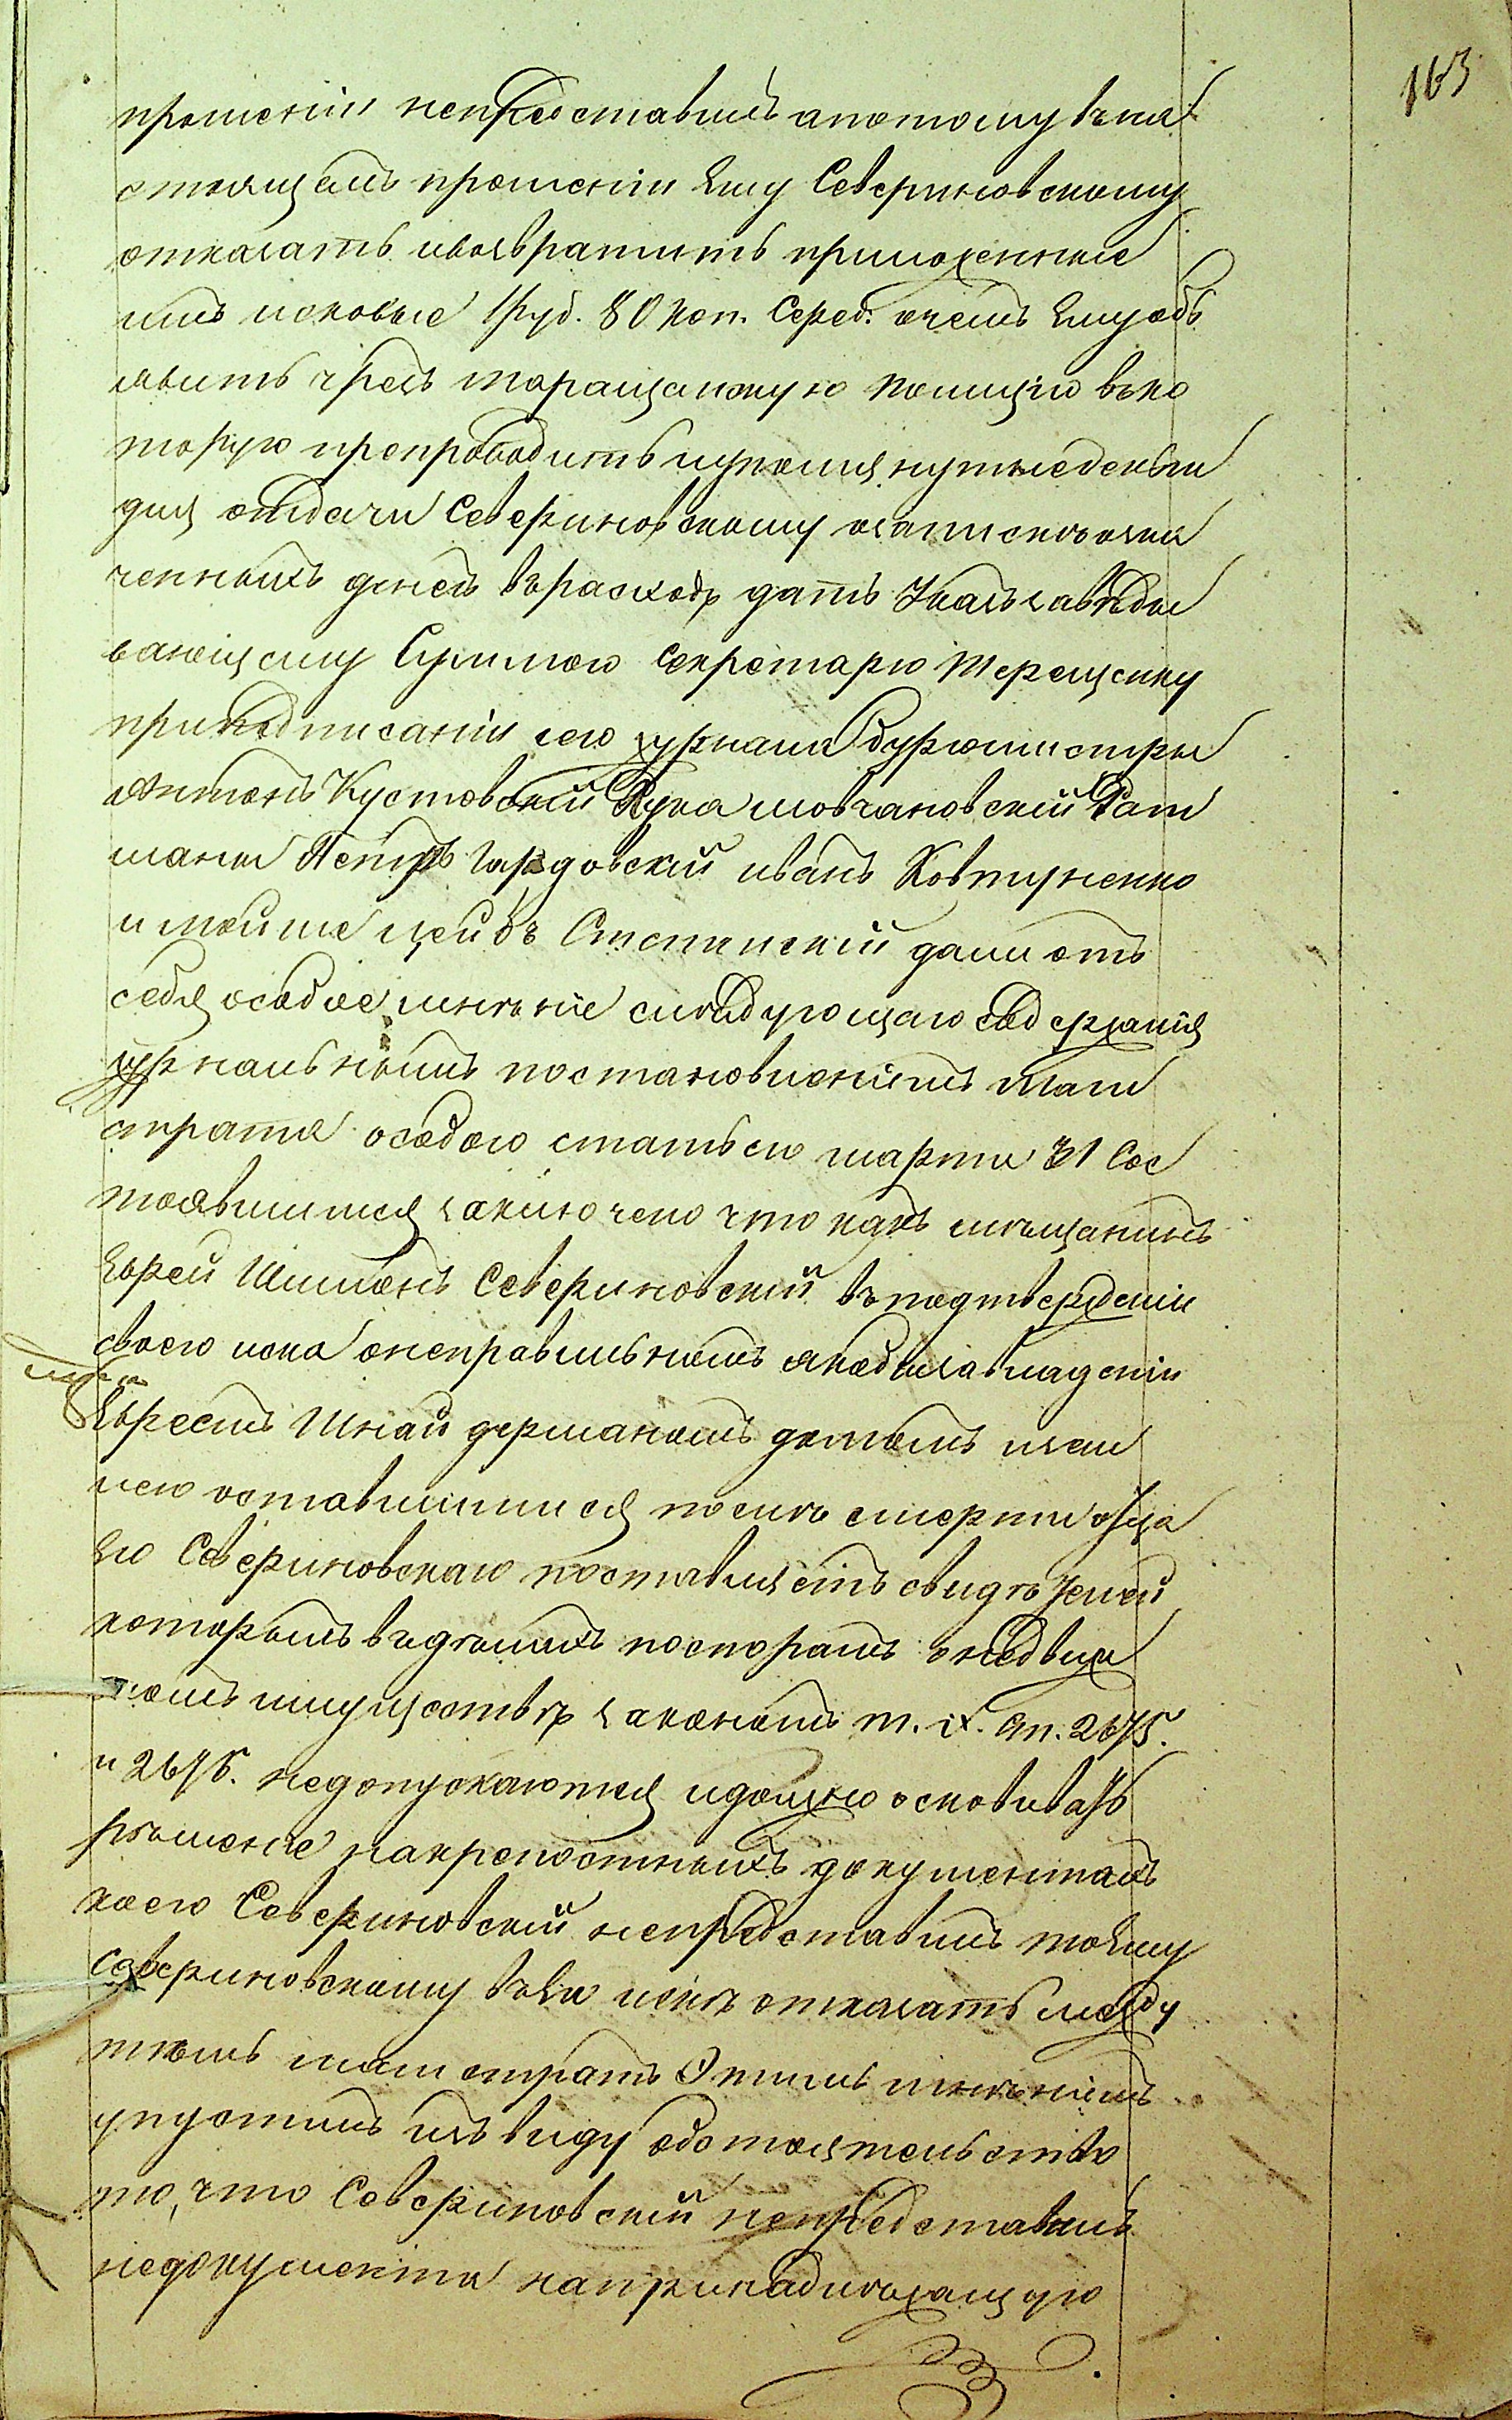 163
прошеніи непредставилъ апотому вънас
стоящемъ прошеніи Ему Севериновскому
отказать ивозвратить приложенные
имъ исковые 1 руб. 80 коп. Сереб. очемъ Ему объ
явить чрезъ таращанскую полицію въко
торую препроводить иупомянутыеденьги
для отдачи Севериновскому записавъозна
ченныхъ денегъ върасходъ дать Указъ завѣды
вающему Суммою Секретарю Терещенку
приподписаніи сего журнала Бургомистры
Антонъ Кустовскій Лука мовчановскій Рат
маны Петръ Гардовскій иванъ Ковтуненко
и мойше лейбъ Степанскій дали отъ
себя особое мнѣніе слѣдующаго содержанія
журнальнымъ постановленіемъ маги
страта особою статьею марта 31 Сос
тоявшимся заключено что какъ мѣщанинъ
Еврей Шимонъ Севериновскій въподтвержденіи
своего иска онеправильномъ якобызавладеніи
Евреемъ Шнайдерманомъ домомъ изем
лею оставшимися послѣ смерти отца
его Севериновскаго поставляетъ свидѣтелей
которымъ въдѣлахъ поспорамъ онедвижи
момъ имуществѣ закономъ т. X. ст. 2675.
и 2676. недопускаются идолжно основивать
рѣшеніе накрепостныхъ документахъ
коего Севериновскій непредставилъ тоЕму
Севериновскому въЕго искѣ отказать между
тѣмъ магистратъ Этимъ мнѣніемъ
упустилъ изъ виду обстоятельство
то, что Севериновскій непредставилъ
недокумента напринадлежащую